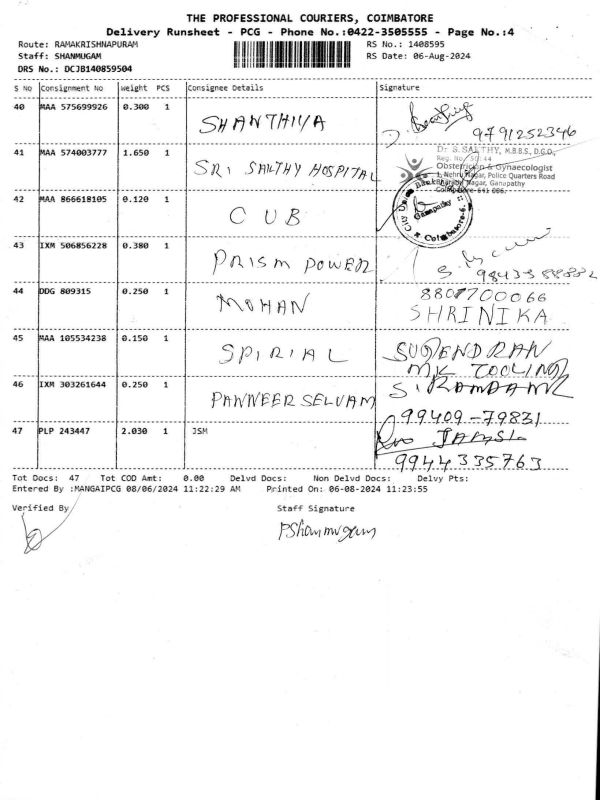 THE PROFESSIONAL COURIERS, COIMBATORE
Delivery Runsheet - PCG - Phone No.:0422-3505555 - Page No.:4
Route: RAMAKRISHNAPURAM RS No.: 1408595
Staff: SHANMUGAM RS Date: 06-Aug-2024
DRS No.: DCJB140859504
S No Consignment No Weight PCS Consignee Details Signature
40 MAA 575699926 0.300 1 SHANTHIYA
9791252346
41 MAA 574003777 1.650 1 SRI SAKTHY HOSPITAL
Dr S.SAKTHY, M.B.B.S, D.G.O,
Obstetrician & Gynaecologist
1, Nehru Nagar, Police Quarters Road
Bharathy Nagar, Ganapathy
Coimbatore-641 006.
42 MAA 866618105 0.120 1 CUB
City Union Bank Ganapathy Coimbatore-6.
43 IXM 506856228 0.380 1 PRISM POWER
44 DDG 809315 0.250 1 MOHAN
8807700066
SHRINIKA
45 MAA 105534238 0.150 1 SPIRIAL
SUGENDRAN
MK TOOLING
46 IXM 303261644 0.250 1 PANNEER SELVAM
99409-79831
47 PLP 243447 2.030 1 JSM
9944335763
Tot Docs: 47 Tot COD Amt: 0.00 Delvd Docs: Non Delvd Docs: Delvy Pts:
Entered By :MANGAIPCG 08/06/2024 11:22:29 AM Printed On: 06-08-2024 11:23:55
Verified By Staff Signature
PShanmugam